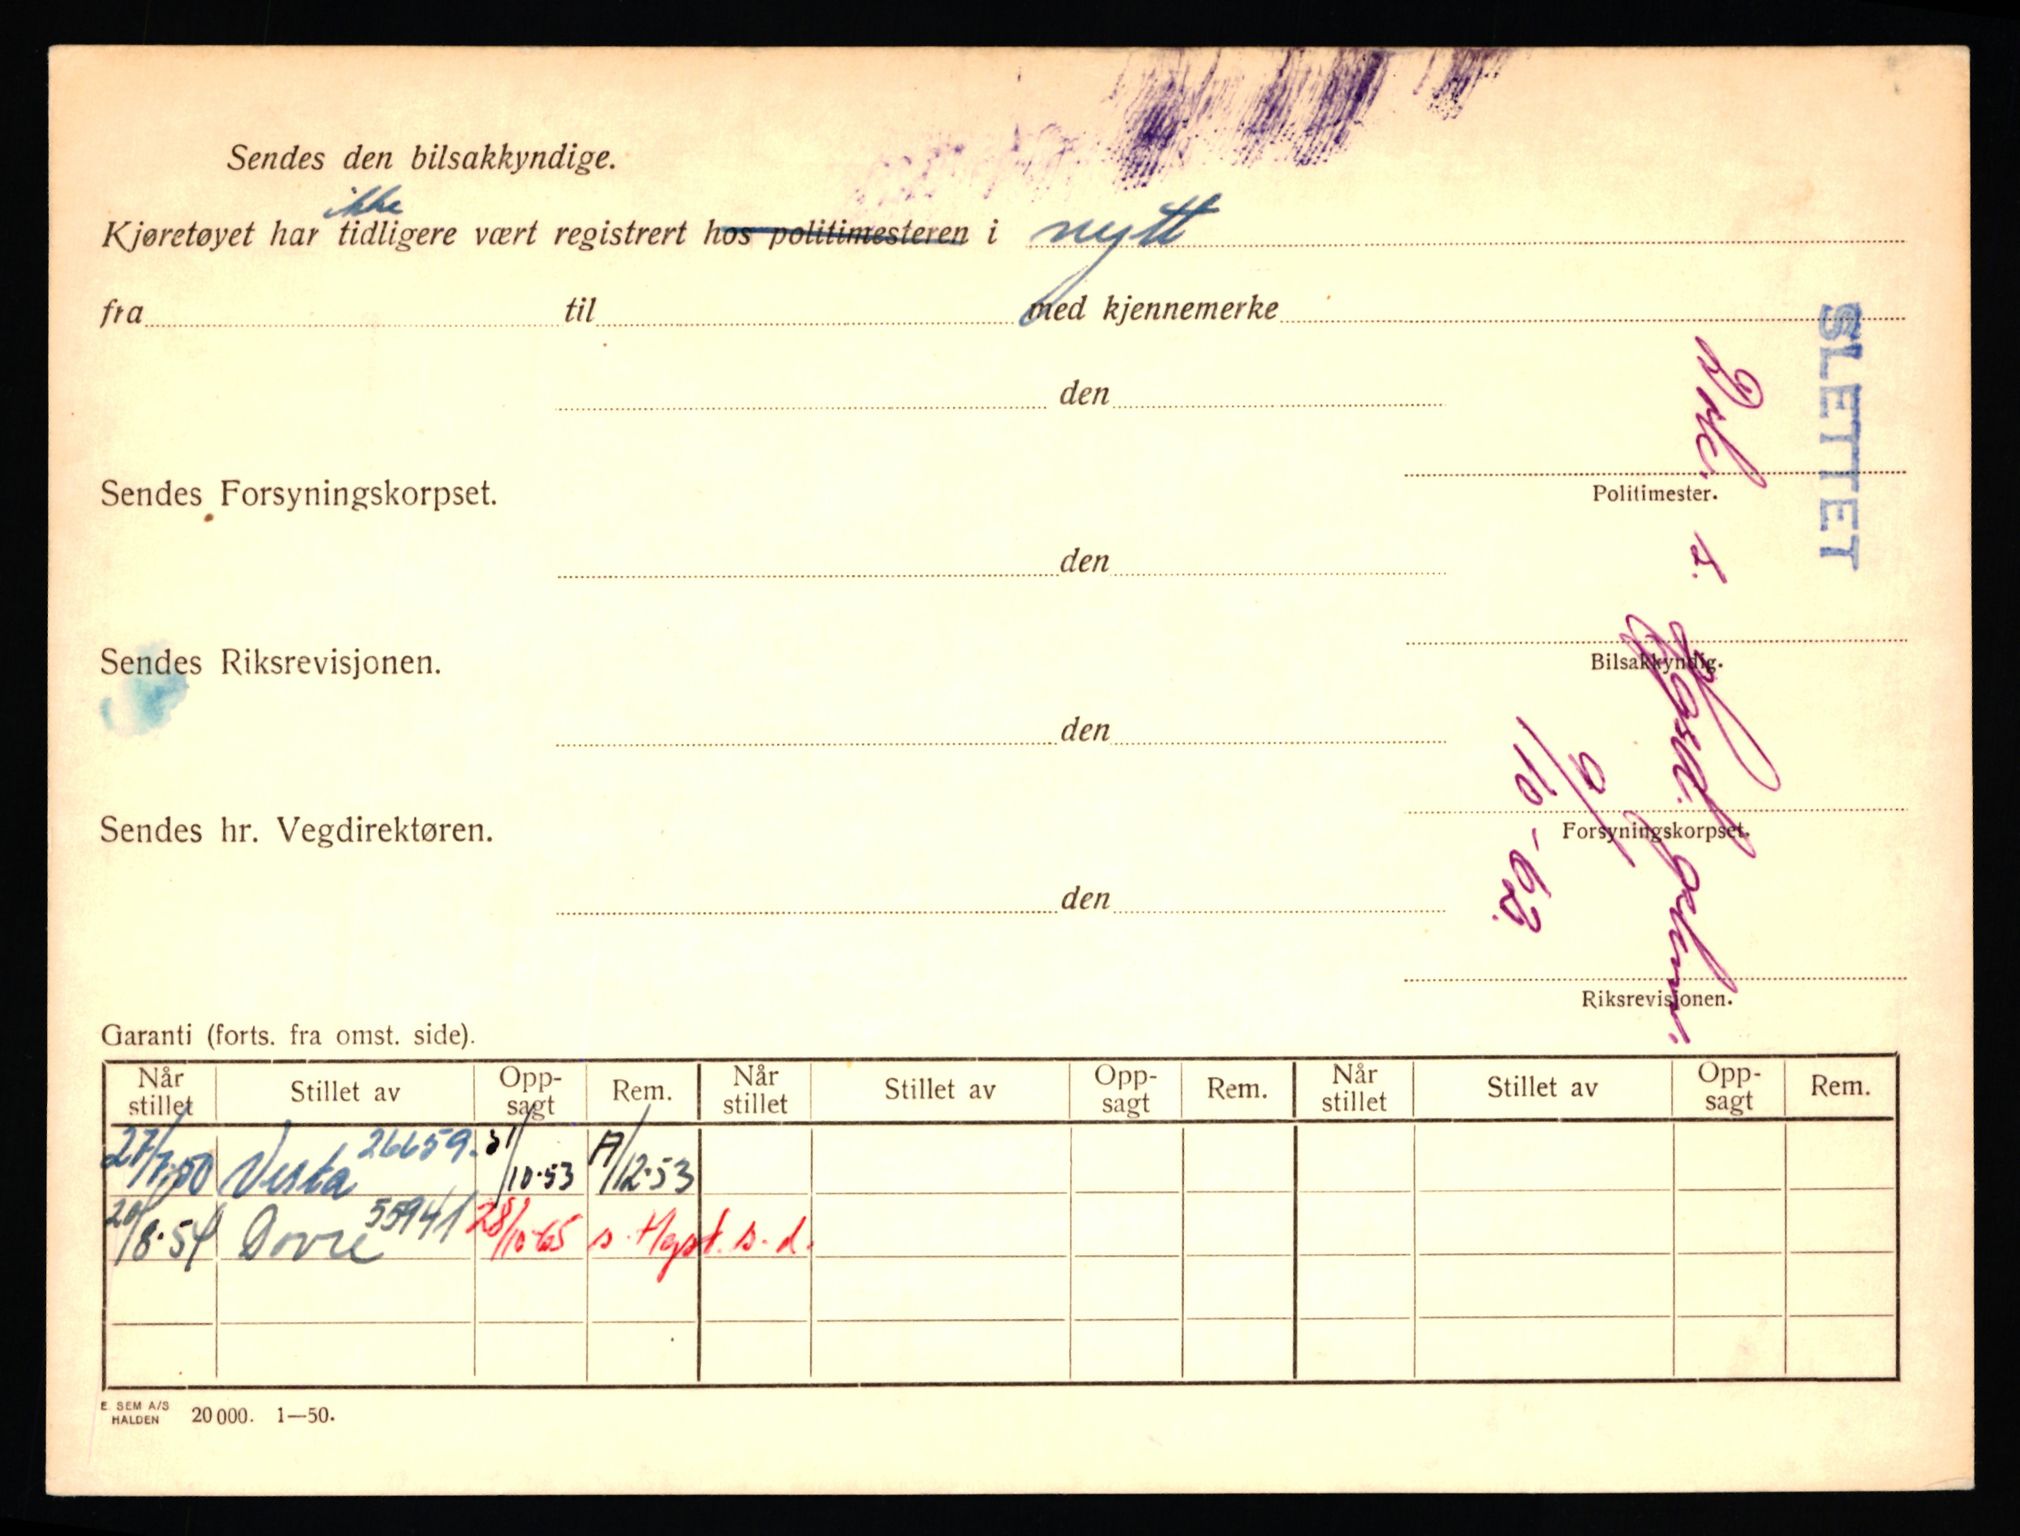 Sendes den bilsakkyndige.
Kjøretøyet har ikke tidligere vært registrert hos politimesteren i nytt
fra til med kjennemerke
den
Politimester.
Sendes Forsyningskorpset.
den
Bilsakkyndig.
Sendes Riksrevisjonen.
den
Forsyningskorpset.
Sendes hr. Vegdirektøren.
den
Riksrevisjonen.
SLETTET
9/10-62.
Garanti (forts. fra omst. side).
Når stillet Stillet av Opp-sagt Rem. Når stillet Stillet av Opp-sagt Rem. Når stillet Stillet av Opp-sagt Rem.
27/7-50 Vesta 26659. 31/10-53 A/12-53
20/8-54 Dovre 55941 28/10-65 s. Hgst. s. d.
E. SEM A/S
HALDEN 20 000. 1—50.